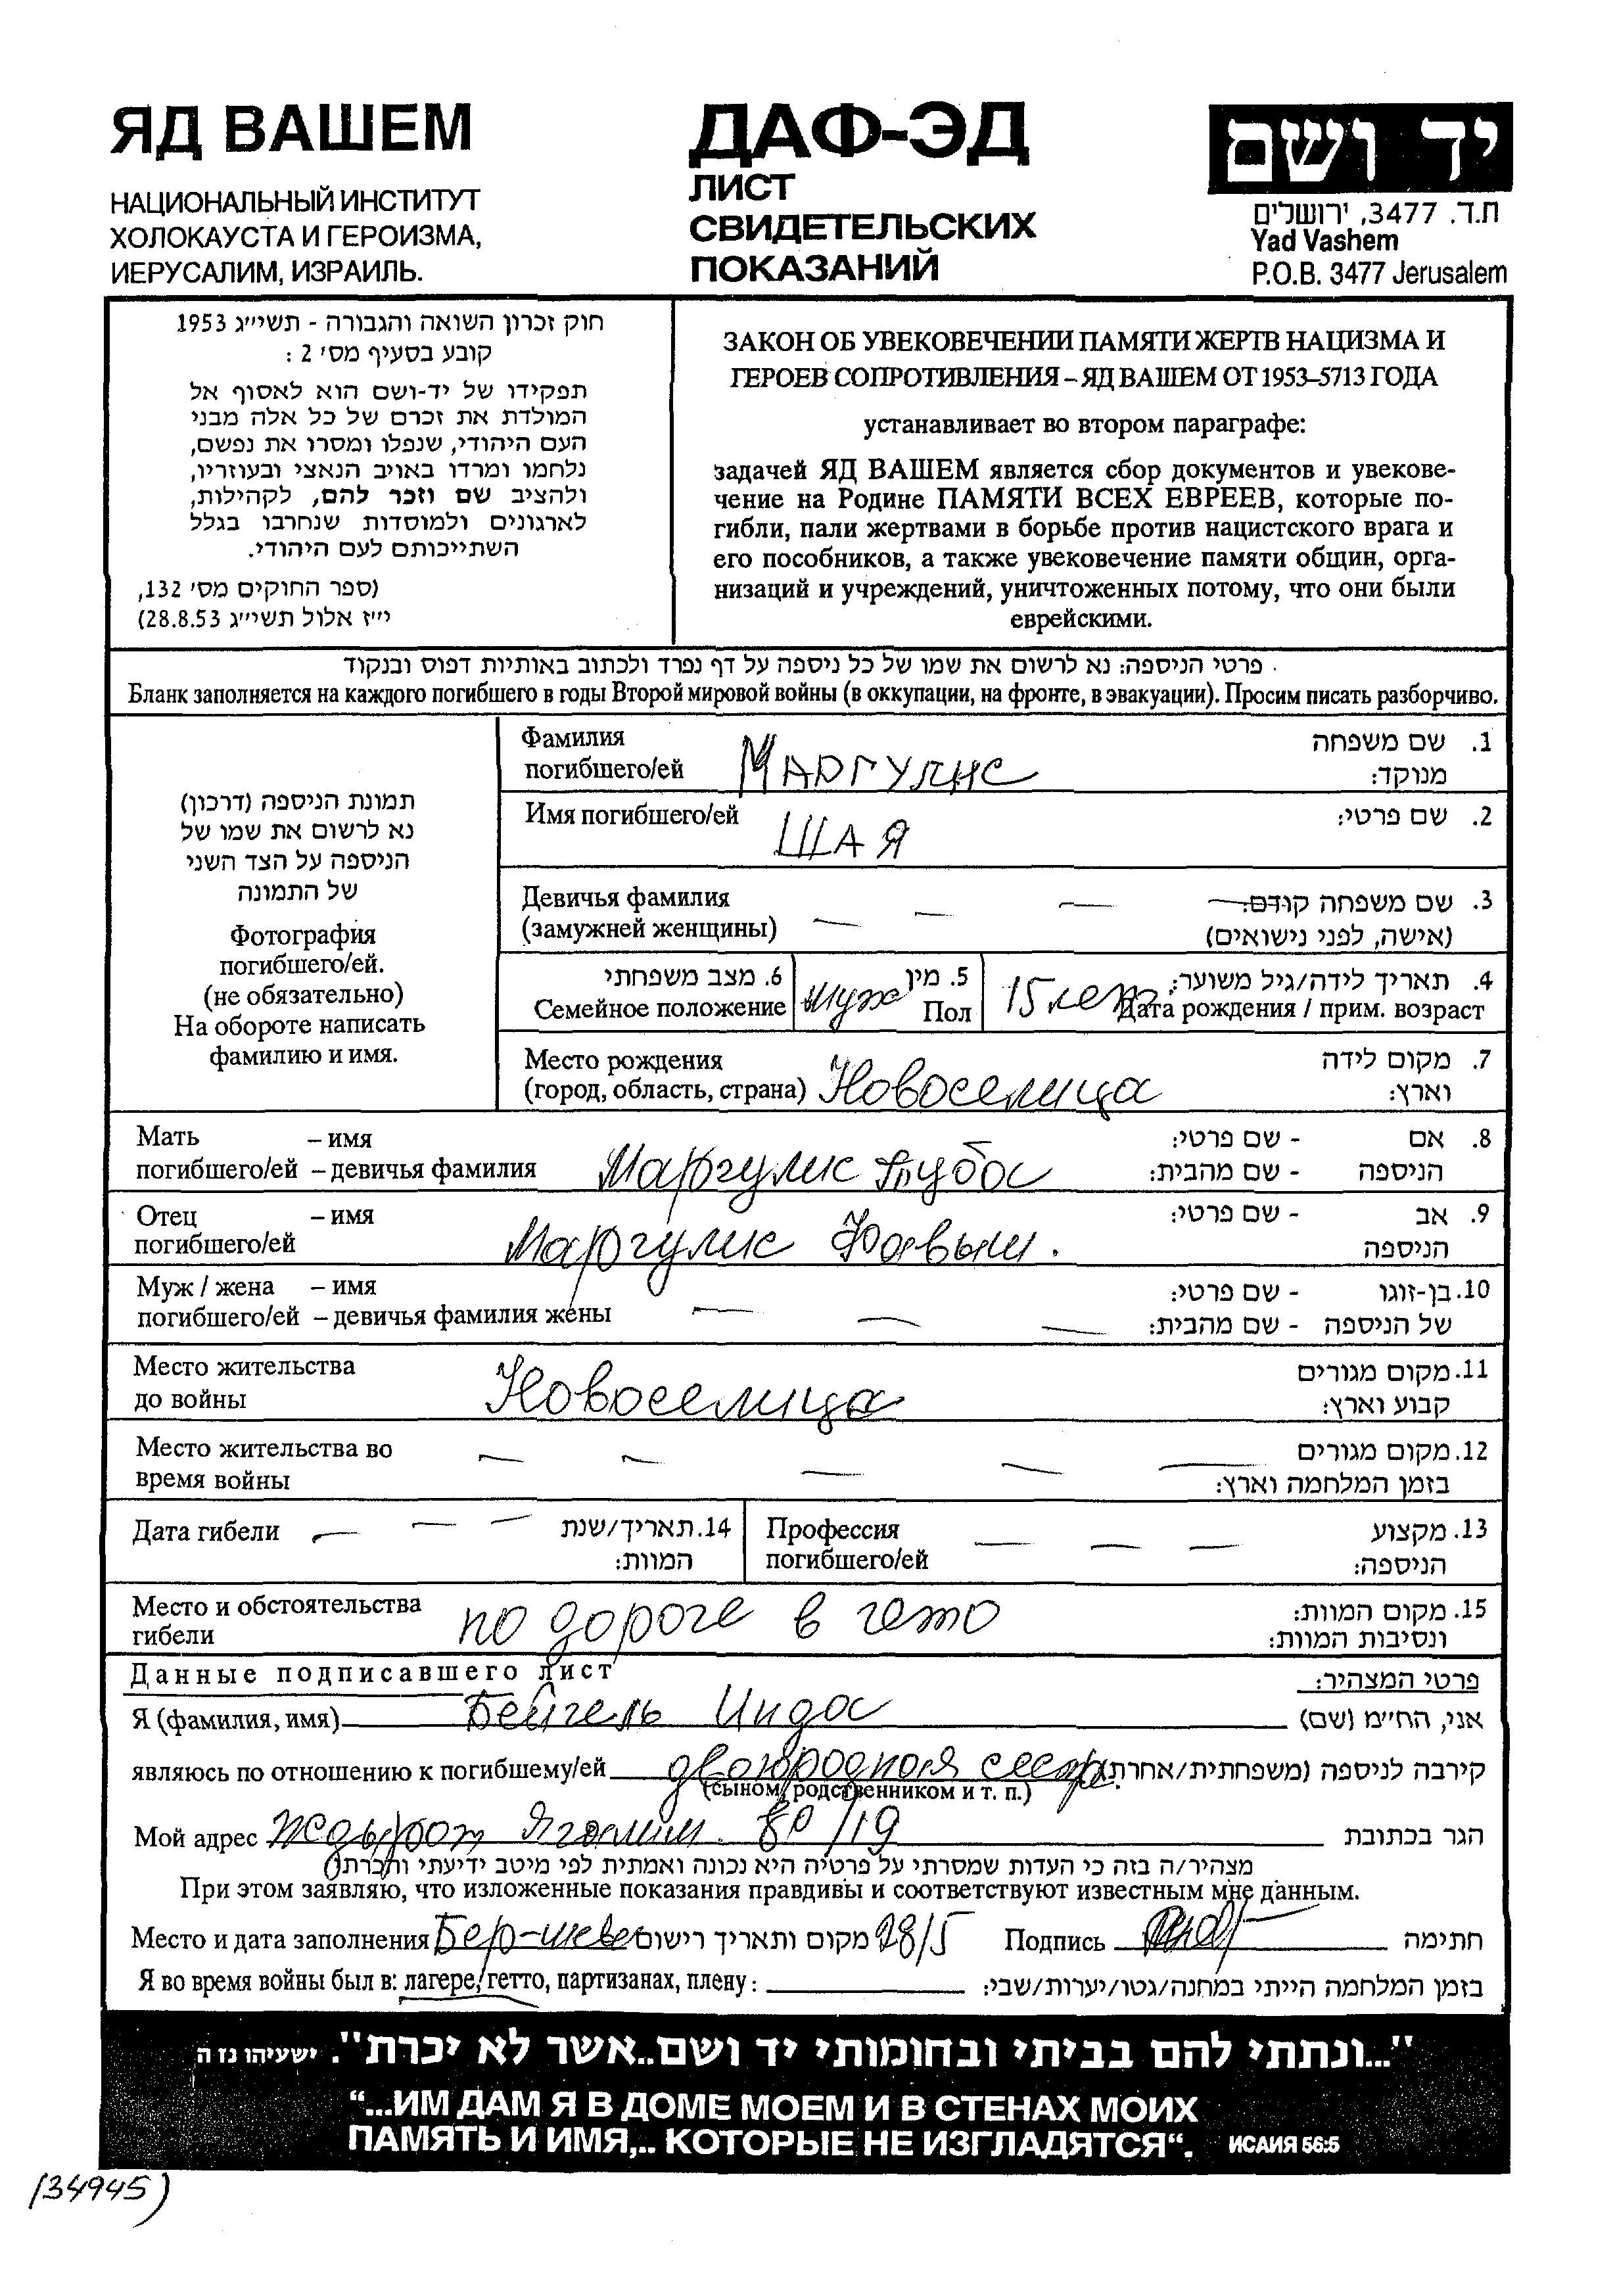 ЯД ВАШЕМ
НАЦИОНАЛЬНЫЙ ИНСТИТУТ
ХОЛОКАУСТА И ГЕРОИЗМА,
ИЕРУСАЛИМ, ИЗРАИЛЬ.
ДАФ-ЭД
ЛИСТ
СВИДЕТЕЛЬСКИХ
ПОКАЗАНИЙ
יד ושם
ת.ד. 3477, ירושלים
Yad Vashem
P.O.B. 3477 Jerusalem
חוק זכרון השואה והגבורה - תשי״ג 1953
קובע בסעיף מס׳ 2 :
תפקידו של יד-ושם הוא לאסוף אל
המולדת את זכרם של כל אלה מבני
העם היהודי, שנפלו ומסרו את נפשם,
נלחמו ומרדו באויב הנאצי ובעוזריו,
ולהציב שם וזכר להם, לקהילות,
לארגונים ולמוסדות שנחרבו בגלל
השתייכותם לעם היהודי.
(ספר החוקים מס׳ 132,
י״ז אלול תשי״ג 28.8.53)
ЗАКОН ОБ УВЕКОВЕЧЕНИИ ПАМЯТИ ЖЕРТВ НАЦИЗМА И
ГЕРОЕВ СОПРОТИВЛЕНИЯ – ЯД ВАШЕМ ОТ 1953–5713 ГОДА
устанавливает во втором параграфе:
задачей ЯД ВАШЕМ является сбор документов и увекове-
чение на Родине ПАМЯТИ ВСЕХ ЕВРЕЕВ, которые по-
гибли, пали жертвами в борьбе против нацистского врага и
его пособников, а также увековечение памяти общин, орга-
низаций и учреждений, уничтоженных потому, что они были
еврейскими.
פרטי הניספה: נא לרשום את שמו של כל ניספה על דף נפרד ולכתוב באותיות דפוס ובנקוד
Бланк заполняется на каждого погибшего в годы Второй мировой войны (в оккупации, на фронте, в эвакуации). Просим писать разборчиво.
תמונת הניספה (דרכון)
נא לרשום את שמו של
הניספה על הצד השני
של התמונה
Фотография
погибшего/ей.
(не обязательно)
На обороте написать
фамилию и имя.
Фамилия 1. שם משפחה
погибшего/ей МАРГУЛИС מנוקד:
Имя погибшего/ей ШАЯ 2. שם פרטי:
Девичья фамилия — — — 3. שם משפחה קודם:
(замужней женщины) (אישה, לפני נישואים)
6. מצב משפחתי 5. מין 4. תאריך לידה/גיל משוער:
Семейное положение муж Пол 15 лет Дата рождения / прим. возраст
Место рождения 7. מקום לידה
(город, область, страна) Новоселица וארץ:
Мать – имя - שם פרטי: 8. אם
погибшего/ей – девичья фамилия Маргулис Туба - שם מהבית: הניספה
Отец – имя - שם פרטי: 9. אב
погибшего/ей Маргулис Фавыш. הניספה
Муж / жена – имя - שם פרטי: 10. בן-זוגו
погибшего/ей – девичья фамилия жены — — — - שם מהבית: של הניספה
Место жительства 11. מקום מגורים
до войны Новоселица קבוע וארץ:
Место жительства во — — — — — 12. מקום מגורים
время войны בזמן המלחמה וארץ:
Дата гибели — — — 14. תאריך/שנת Профессия — — — — 13. מקצוע
המוות: погибшего/ей הניספה:
Место и обстоятельства по дороге в гето 15. מקום המוות:
гибели ונסיבות המוות:
Данные подписавшего лист פרטי המצהיר:
Я (фамилия, имя) Бейгель Инда אני, הח״מ (שם)
являюсь по отношению к погибшему/ей двоюродная сестра קירבה לניספה (משפחתית/אחרת)
(сыном, родственником и т. п.)
Мой адрес 80/19 הגר בכתובת
מצהיר/ה בזה כי העדות שמסרתי על פרטיה היא נכונה ואמתית לפי מיטב ידיעתי והכרתי
При этом заявляю, что изложенные показания правдивы и соответствуют известным мне данным.
Место и дата заполнения Бер-шева מקום ותאריך רישום 28/5 Подпись חתימה
Я во время войны был в: лагере, гетто, партизанах, плену: בזמן המלחמה הייתי במחנה/גטו/יערות/שבי:
"...ונתתי להם בביתי ובחומותי יד ושם..אשר לא יכרת". ישעיהו נז ה
“...ИМ ДАМ Я В ДОМЕ МОЕМ И В СТЕНАХ МОИХ
ПАМЯТЬ И ИМЯ,.. КОТОРЫЕ НЕ ИЗГЛАДЯТСЯ“. ИСАИЯ 56:5
(34945)